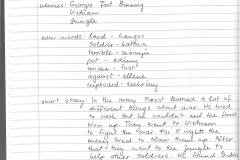 venues: Georgia Fort Benning
Vietnam
Jungle
new words: hard - hangos
Soldier - katona
terrible - szörnyű
put -
smoke - füst
against - ellene
cupboard - szekrény
short story: In the army Forest learned a lot of
different things about war. He tried
to but he couldn't and the food
blow up. They went to Vietnam
to fight the war for 5 night the
enemy tried to blow them up. After
that they went to the jungle to
help other soldiers. He found Bubba